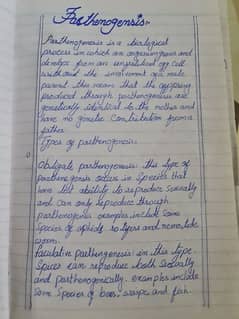 Parthenogensis:-
Parthenogenesis is a biological
process in which an organism grows and
devlops from an unfertilized egg cell
without the involvment of a male
parent this means that the offspring
produced through parthenogenesis are
genetically identical to the mother and
have no genetic contribution from a
father.
Types of parthenogenesis.
Obligate parthenogenesis: this type of
parthenogenesis occurs in species that
have lost ability to reproduce sexually
and can only reproduce through
parthenogenesis examples include some
species of aphids rotifers and nematode
worm.
Facultative parthengenesis: in this type
Spices can reproduce both sexually
and parthenogenically. examples include
some species of bees, wasps and fish